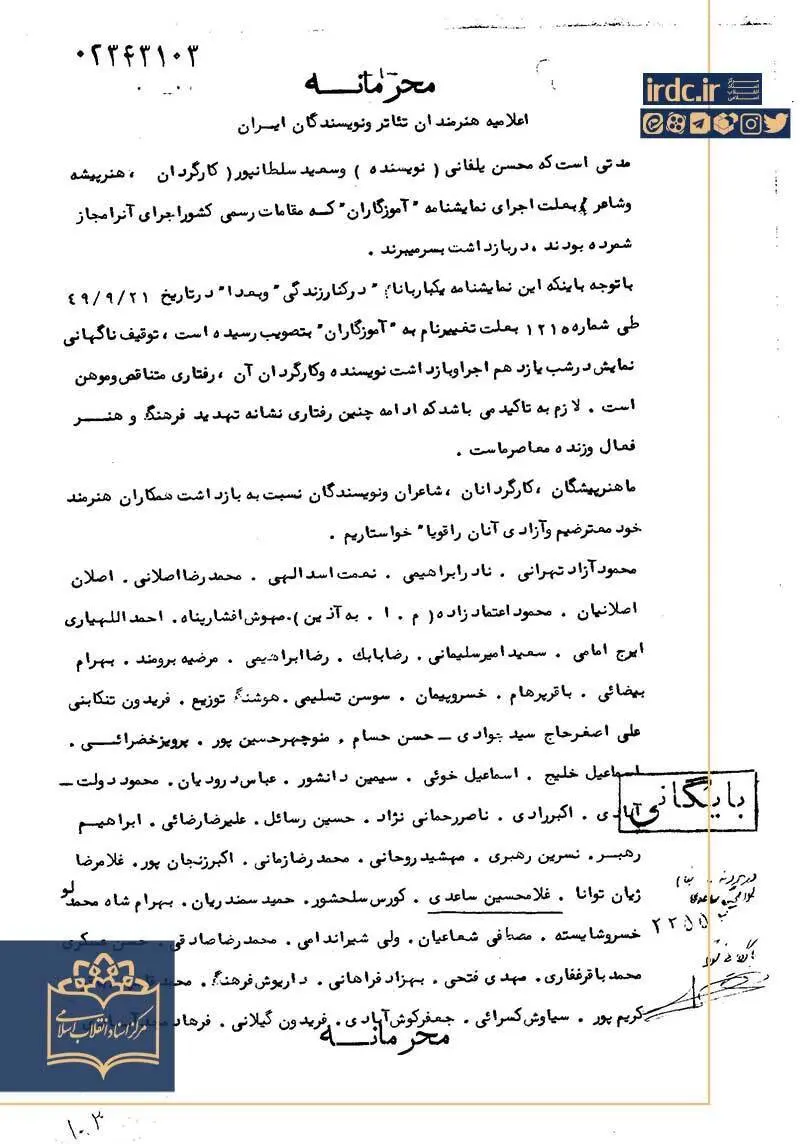 ۰۲۳۴۳۱۰۳
محرمانـــه
irdc.ir
مرکز اسناد انقلاب اسلامی
اعلامیه هنرمندان تئاتر ونویسندگان ایـران
مدتی است که محسن یلفانی ( نویسنده ) وسعید سلطانپور( کارگردان ، هنرپیشه
وشاعر ) بعلت اجرای نمایشنامه "آموزگاران" کـه مقامات رسمی کشوراجرای آنرامجاز
شمرده بودند ، دربازداشت بسرمیبرند .
باتوجه باینکه این نمایشنامه یکباربانام " درکنارزندگی " وبعدا" درتاریخ ۴۹/۹/۲۱
طی شماره ۱۲۱۵ بعلت تغییرنام به "آموزگاران" بتصویب رسیده است ، توقیف ناگهانی
نمایش درشب یازدهم اجراوبازداشت نویسنده وکارگردان آن ، رفتاری متناقض وموهن
است . لازم به تاکیدمی باشدکه ادامه چنین رفتاری نشانه تهدید فرهنگ و هنـــر
فعال وزنده معاصرماست .
ماهنرپیشگان ،کارگردانان ،شاعران ونویسندگان نسبت به بازداشت همکاران هنرمند
خود معترضیم وآزادی آنان راقویا" خواستاریم .
محمودآزادتهرانی . نادرابراهیمی . نعمت اسدالهی . محمدرضااصلانی . اصلان
اصلانیان . محمود اعتمادزاده( م . ا . به آذین ).مهوش افشارپناه. احمداللهیاری
ایرج امامی . سعیدامیرسلیمانی . رضابابك . رضاابراهیمی . مرضیه برومند . بهرام
بیضائی . باقرپرهام . خسروپیمان . سوسن تسلیمی .هوشنگ توزیع . فریدون تنکابنی
علی اصغرحاج سیدجوادی ــ حسن حسام . منوچهرحسین پور . پرویزخضرائـــی .
اسماعیل خلیج . اسماعیل خوئی . سیمین دانشور . عباس درودیان. محمود دولت ــ
آبادی . اکبررادی . ناصررحمانی نژاد . حسین رسائل . علیرضارضائی . ابراهیـم
رهبـر. نسرین رهبری . مهشیدروحانی . محمدرضازمانی . اکبرزنجان پور. غلامرضا
ژیان توانا . غلامحسین ساعدی . کورس سلحشور. حمید سمندریان. بهرام شاه محمدلو
خسروشایسته . مصطفی شعاعیان . ولی شیراندامی . محمدرضاصادقی . حسن عسکری
محمدباقرغفاری. مهدی فتحی . بهزاد فراهانی . داریوش فرهنگ .
کریم پور . سیاوش کسرائی . جعفرکوش آبادی . فریدون گیلانی .
محرمانـــه
بایگانی
غلامحسین ساعدی
مرکز اسناد انقلاب اسلامی
۱۰۳